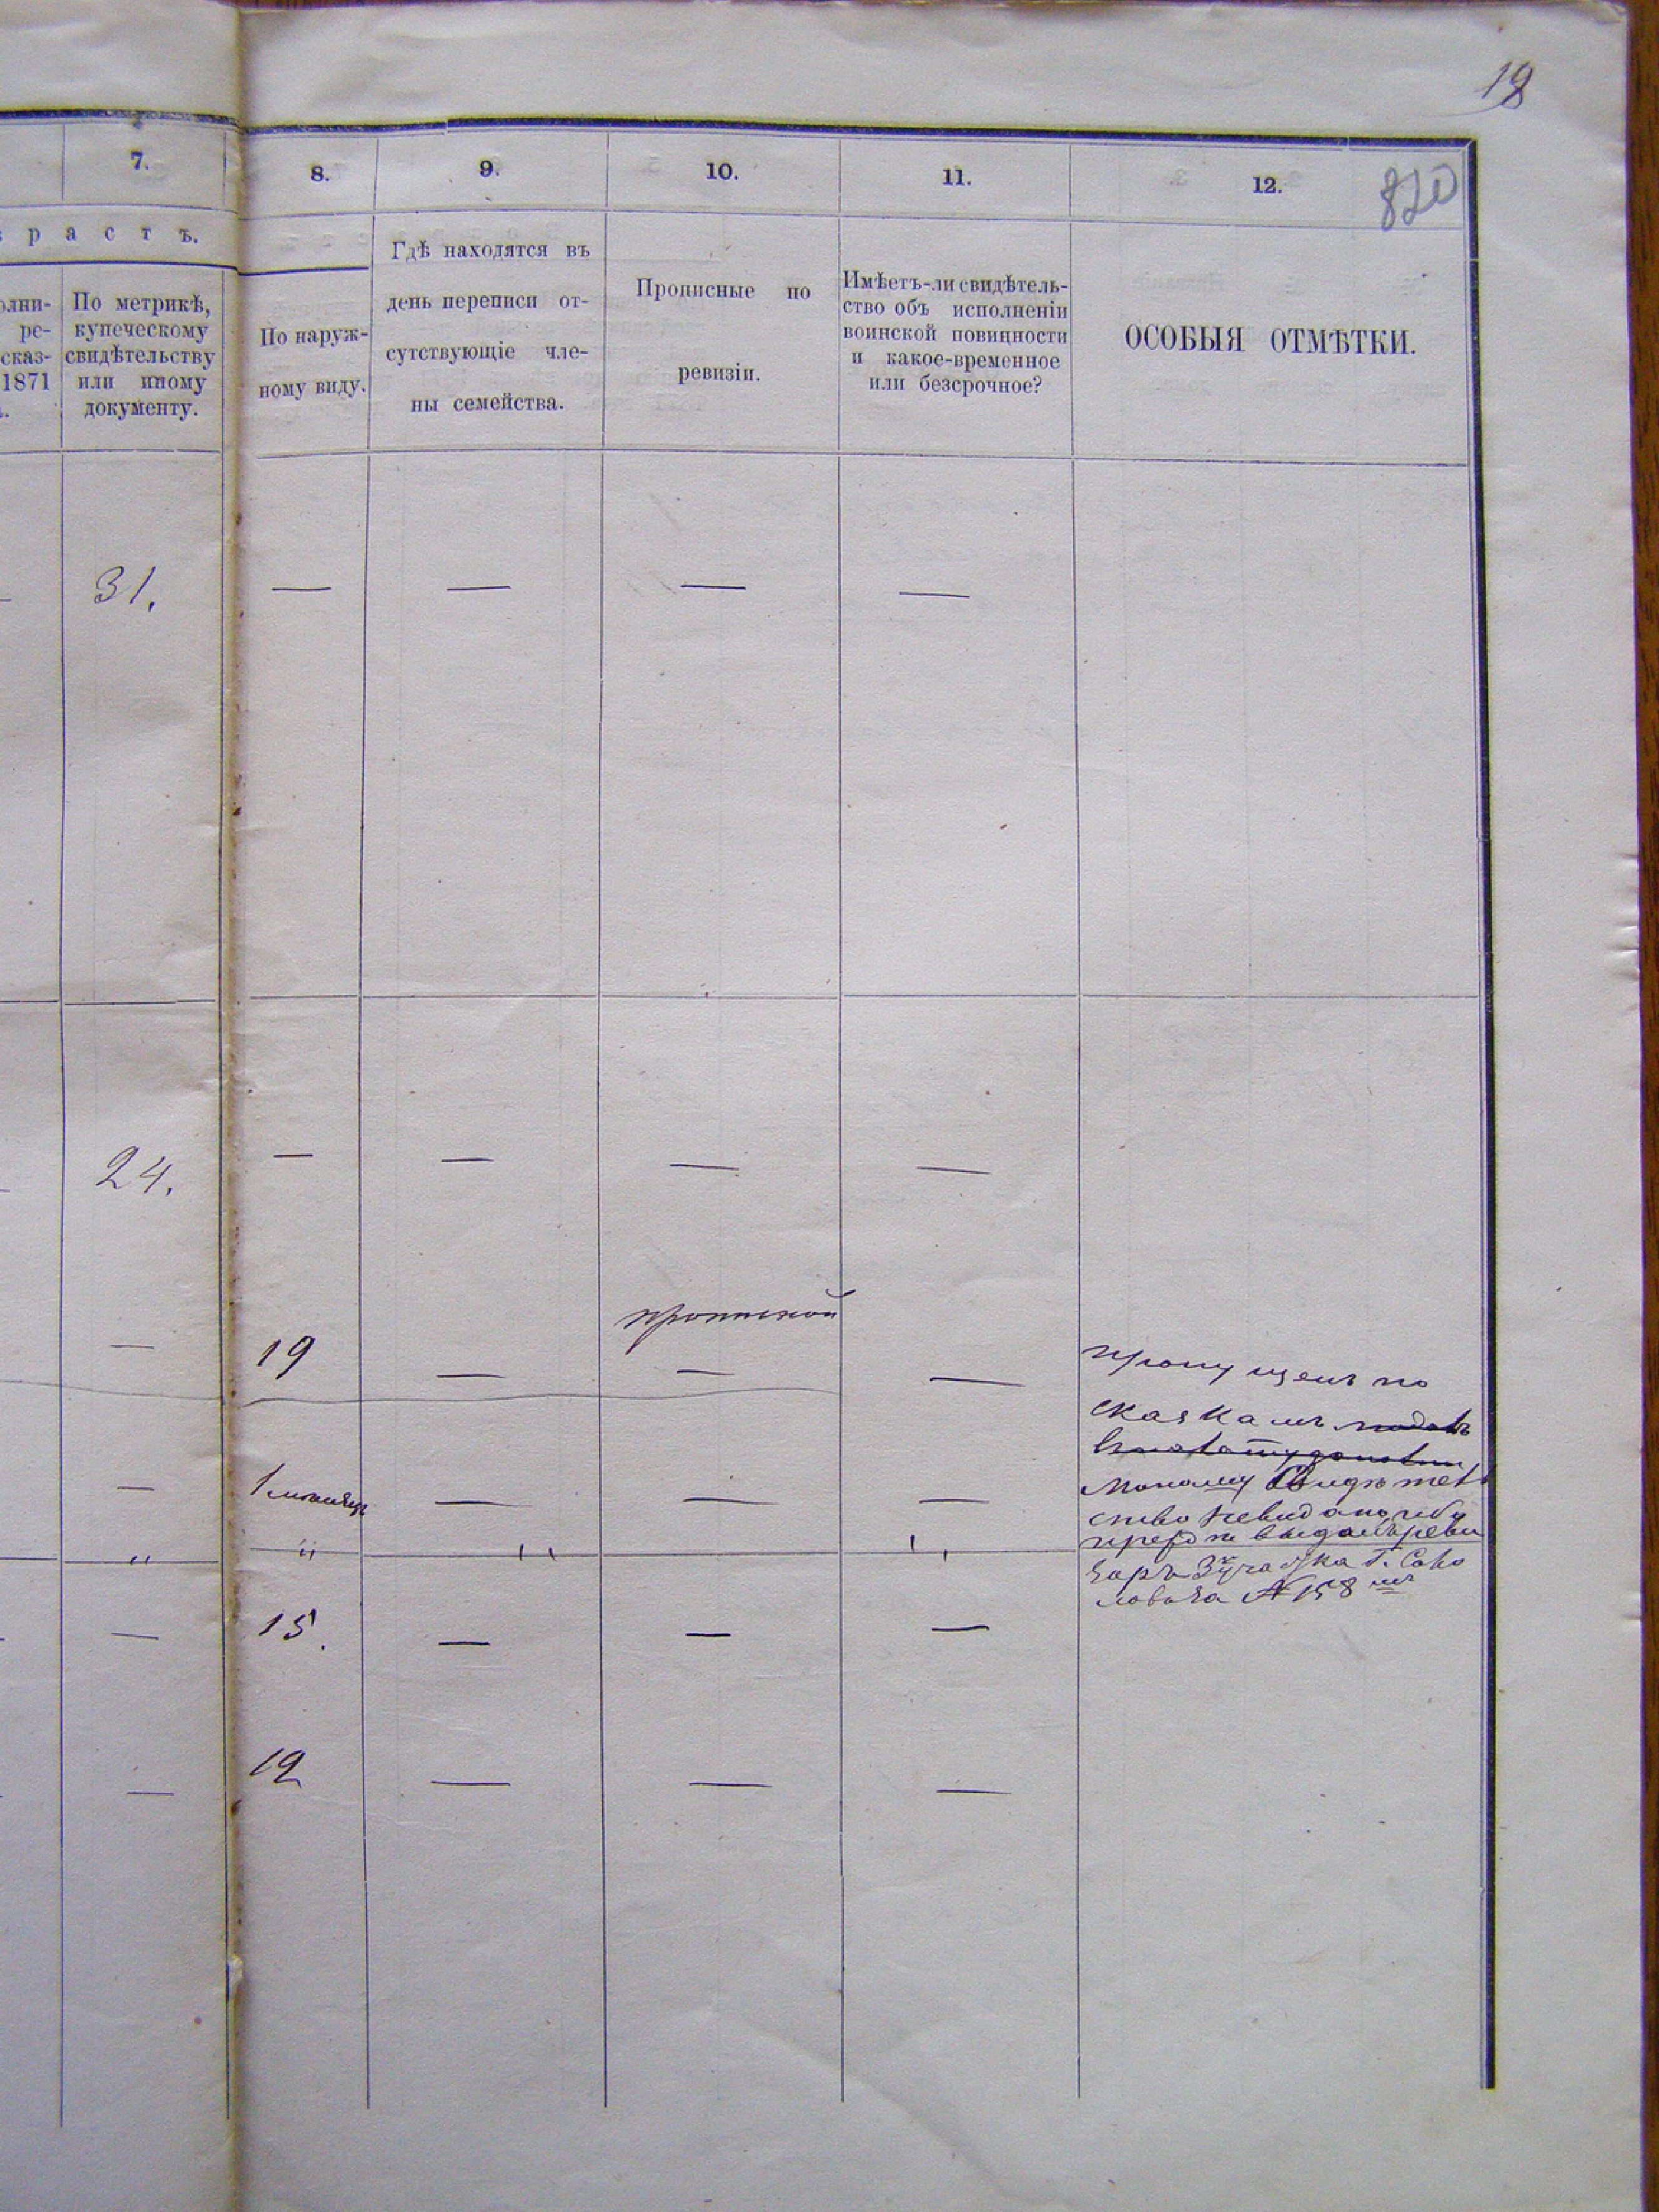 18
820
7. 8. 9. 10. 11. 12.
р а с т ъ.
По метрикѣ,
купеческому
свидѣтельству
или иному
документу.
олни-
ре-
сказ-
1871
По наруж-
ному виду.
Гдѣ находятся въ
день переписи от-
сутствующіе чле-
ны семейства.
Прописные по
ревизіи.
Имѣетъ-ли свидѣтель-
ство объ исполненіи
воинской повинности
и какое-временное
или безсрочное?
ОСОБЫЯ ОТМѢТКИ.
— 31. — — — —
— 24. — — — —
прописной
— 19 — — —
пропущенъ по
сказкамъ
— 1 — — —
ство
" " " "
N 158
— — 15. — — —
— — 12 — — —